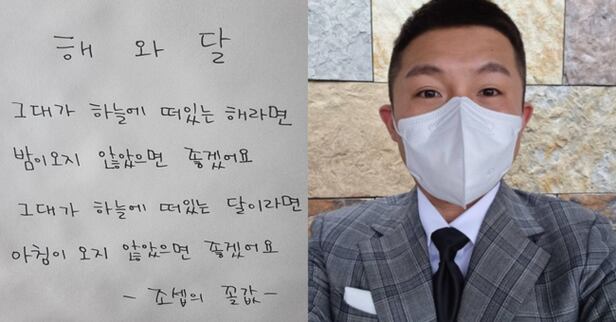 해 와 달
그대가 하늘에 떠있는 해라면
밤이오지 않았으면 좋겠어요
그대가 하늘에 떠있는 달이라면
아침이 오지 않았으면 좋겠어요
- 조셉의 꼴값 -